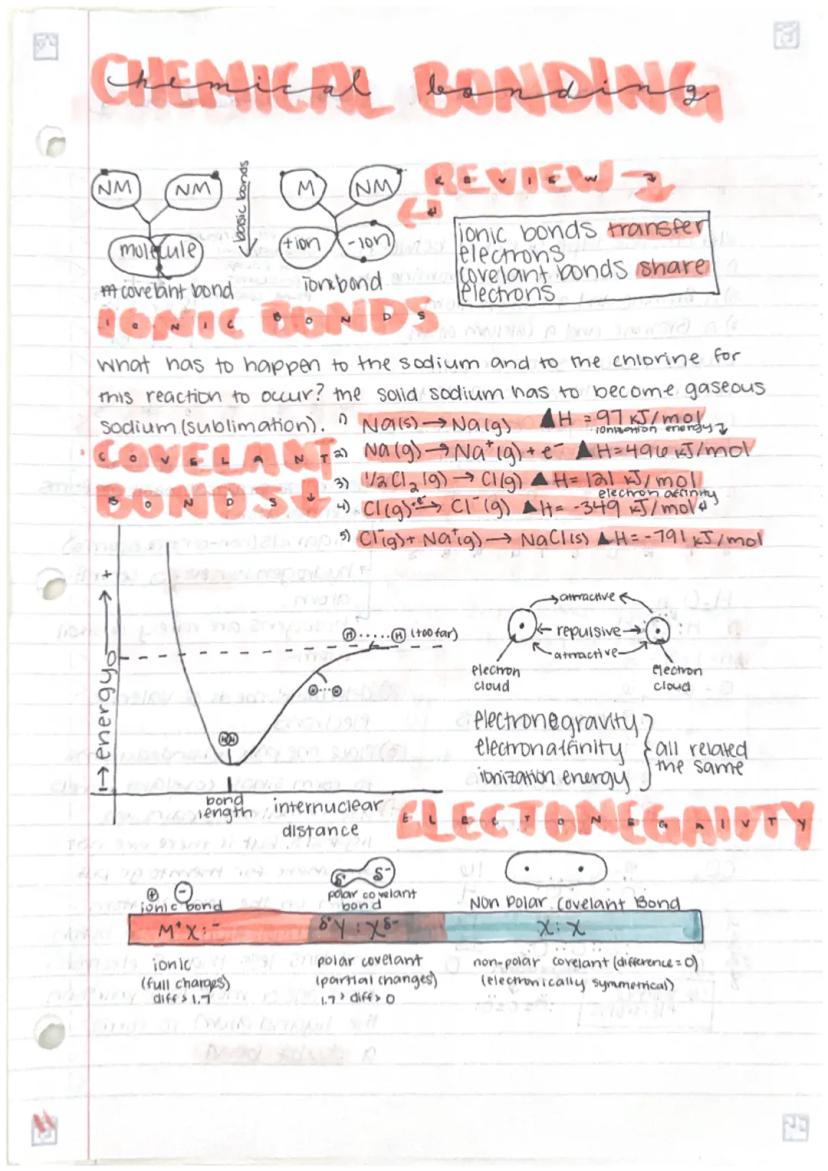 CHEMICAL BONDING
chemical bonding
NM NM
molecule
covelant bond
M NM
+ion -ion
ionic bond
REVIEW
ionic bonds transfer
electrons
covelant bonds share
electrons
IONIC BONDS
What has to happen to the sodium and to the chlorine for
this reaction to occur? the solid sodium has to become gaseous
sodium (sublimation). 1) Na(s) → Na(g) ▲H = 97 kJ/mol
ionization energy
2) Na(g) → Na⁺(g) + e⁻ ▲H = 496 kJ/mol
3) 1/2 Cl₂ (g) → Cl(g) ▲H = 121 kJ/mol
electron affinity
4) Cl(g) + e⁻ → Cl⁻(g) ▲H = -349 kJ/mol
5) Cl⁻(g) + Na⁺(g) → NaCl(s) ▲H = -791 kJ/mol
COVELANT
BONDS ↓
+
energy
0
H.....H (too far)
HH
bond
length
internuclear
distance
attractive
repulsive
attractive
electron
cloud
electron
cloud
electronegravity
electron affinity
ionization energy
all related
the same
ELECTONEGAIVTY
+ -
ionic bond
δ⁺ δ⁻
polar covelant
bond
Non Polar Covelant Bond
M⁺ X:⁻
δ⁺Y : Xδ⁻
X : X
ionic
(full charges)
diff > 1.7
polar covelant
(partial changes)
1.7 > diff > 0
non-polar covelant (difference = 0)
(electronically symmetrical)